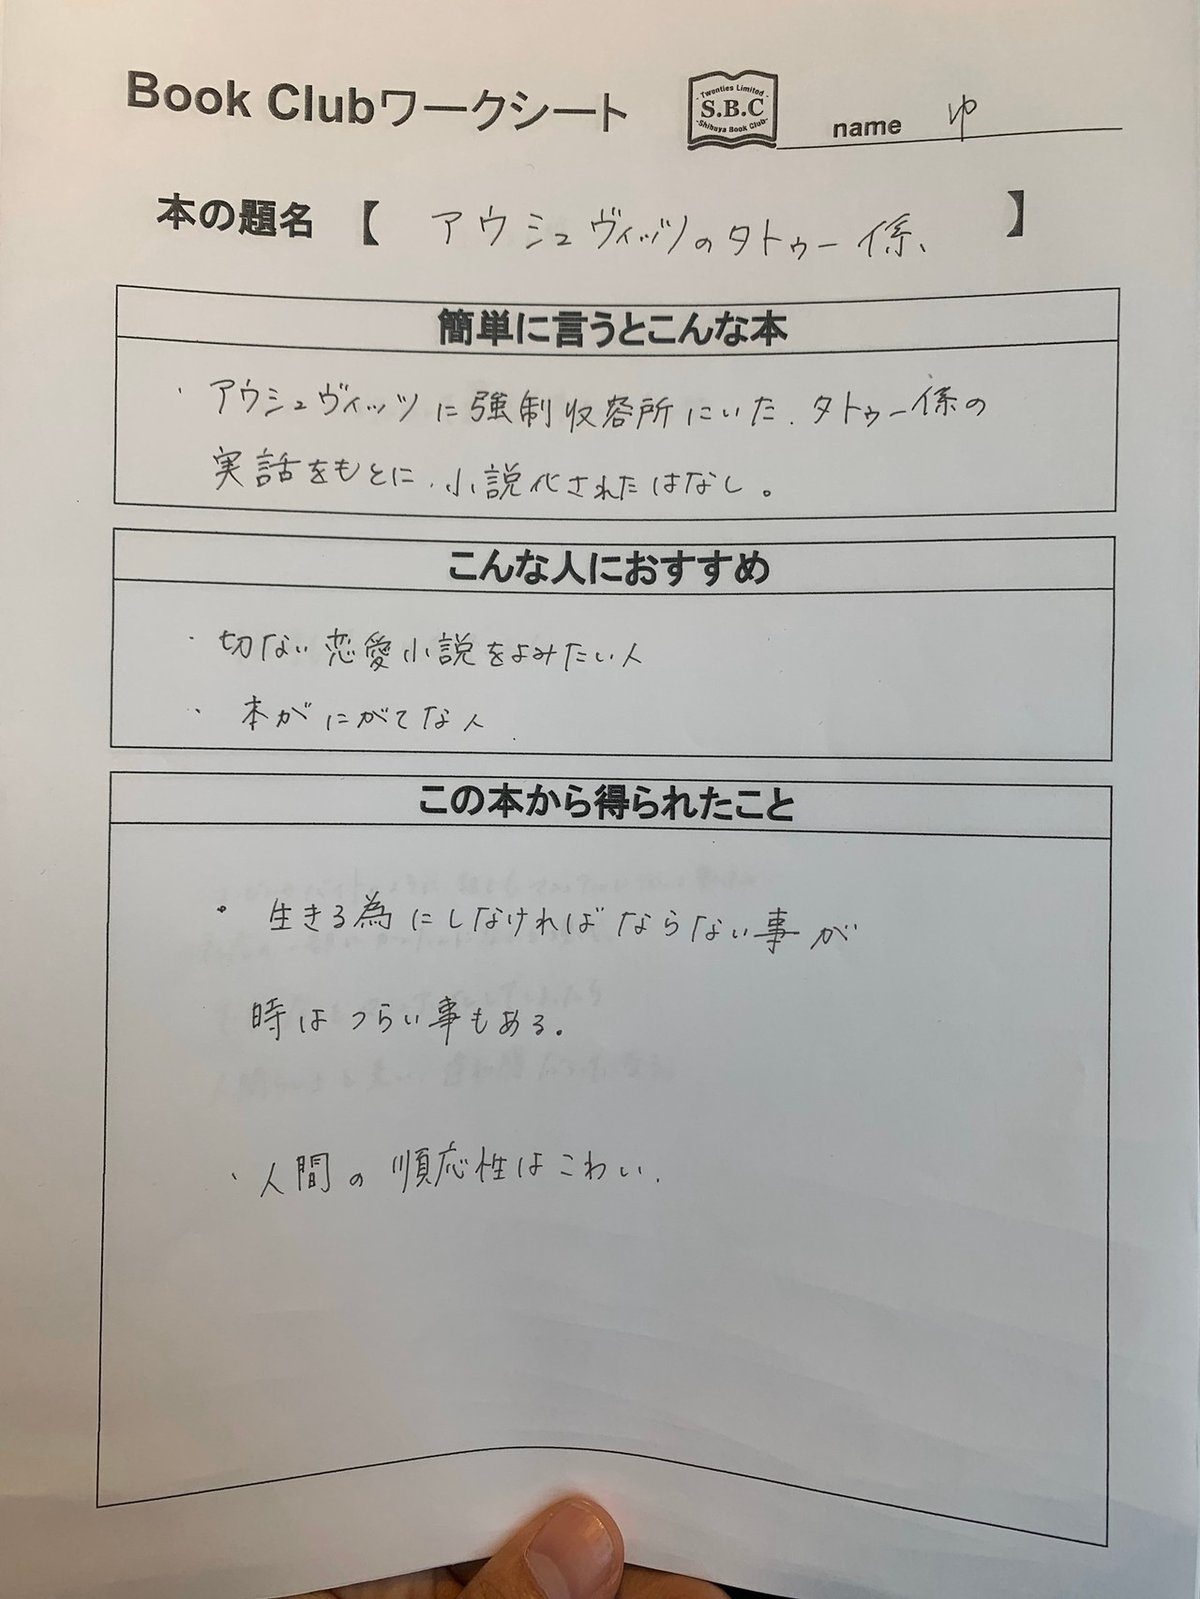 Book Clubワークシート
- Twenties Limited -
S.B.C
-Shibuya Book Club-
name ゆ
本の題名 【 アウシュヴィッツのタトゥー係、 】
簡単に言うとこんな本
・アウシュヴィッツに強制収容所にいた、タトゥー係の
実話をもとに、小説化されたはなし。
こんな人におすすめ
・切ない恋愛小説をよみたい人
・本がにがてな人
この本から得られたこと
・生きる為にしなければならない事が
時はつらい事もある。
・人間の順応性はこわい.